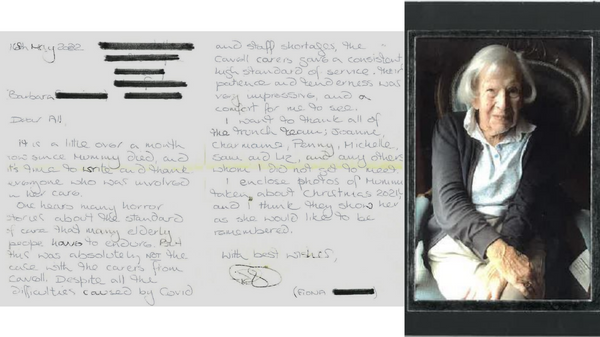 May 2022
Barbara
Dear All,
It is a little over a month
now since Mummy died, and
it's time to write and thank
everyone who was involved
in her care.
One hears many horror
stories about the standard
of care that many elderly
people have to endure. But
this was absolutely not the
case with the carers from
Carroll. Despite all the
difficulties caused by Covid
and staff shortages, the
Carroll carers gave a consistent
high standard of service. Their
patience and tenderness was
very impressive, and a
comfort for me to see.
I want to thank all of
the team, Joanne,
Charmaine, Penny, Michelle,
Sam and Liz, and any others
whom I did not get to meet.
I enclose photos of Mummy
taken about Christmas 2021,
and I think they show her
as she would like to be
remembered.
With best wishes,
(FIONA